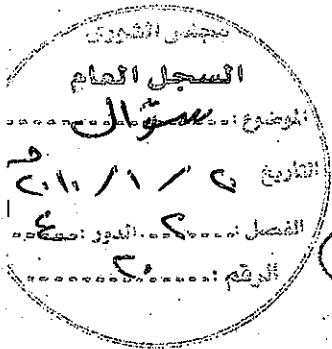 مجلس الشورى
السجل العام
الموضوع: سؤال
التاريخ ٢٠١٠/١/٢٠
الفصل: ٢ الدور: ٤
الرقم: ٢٠